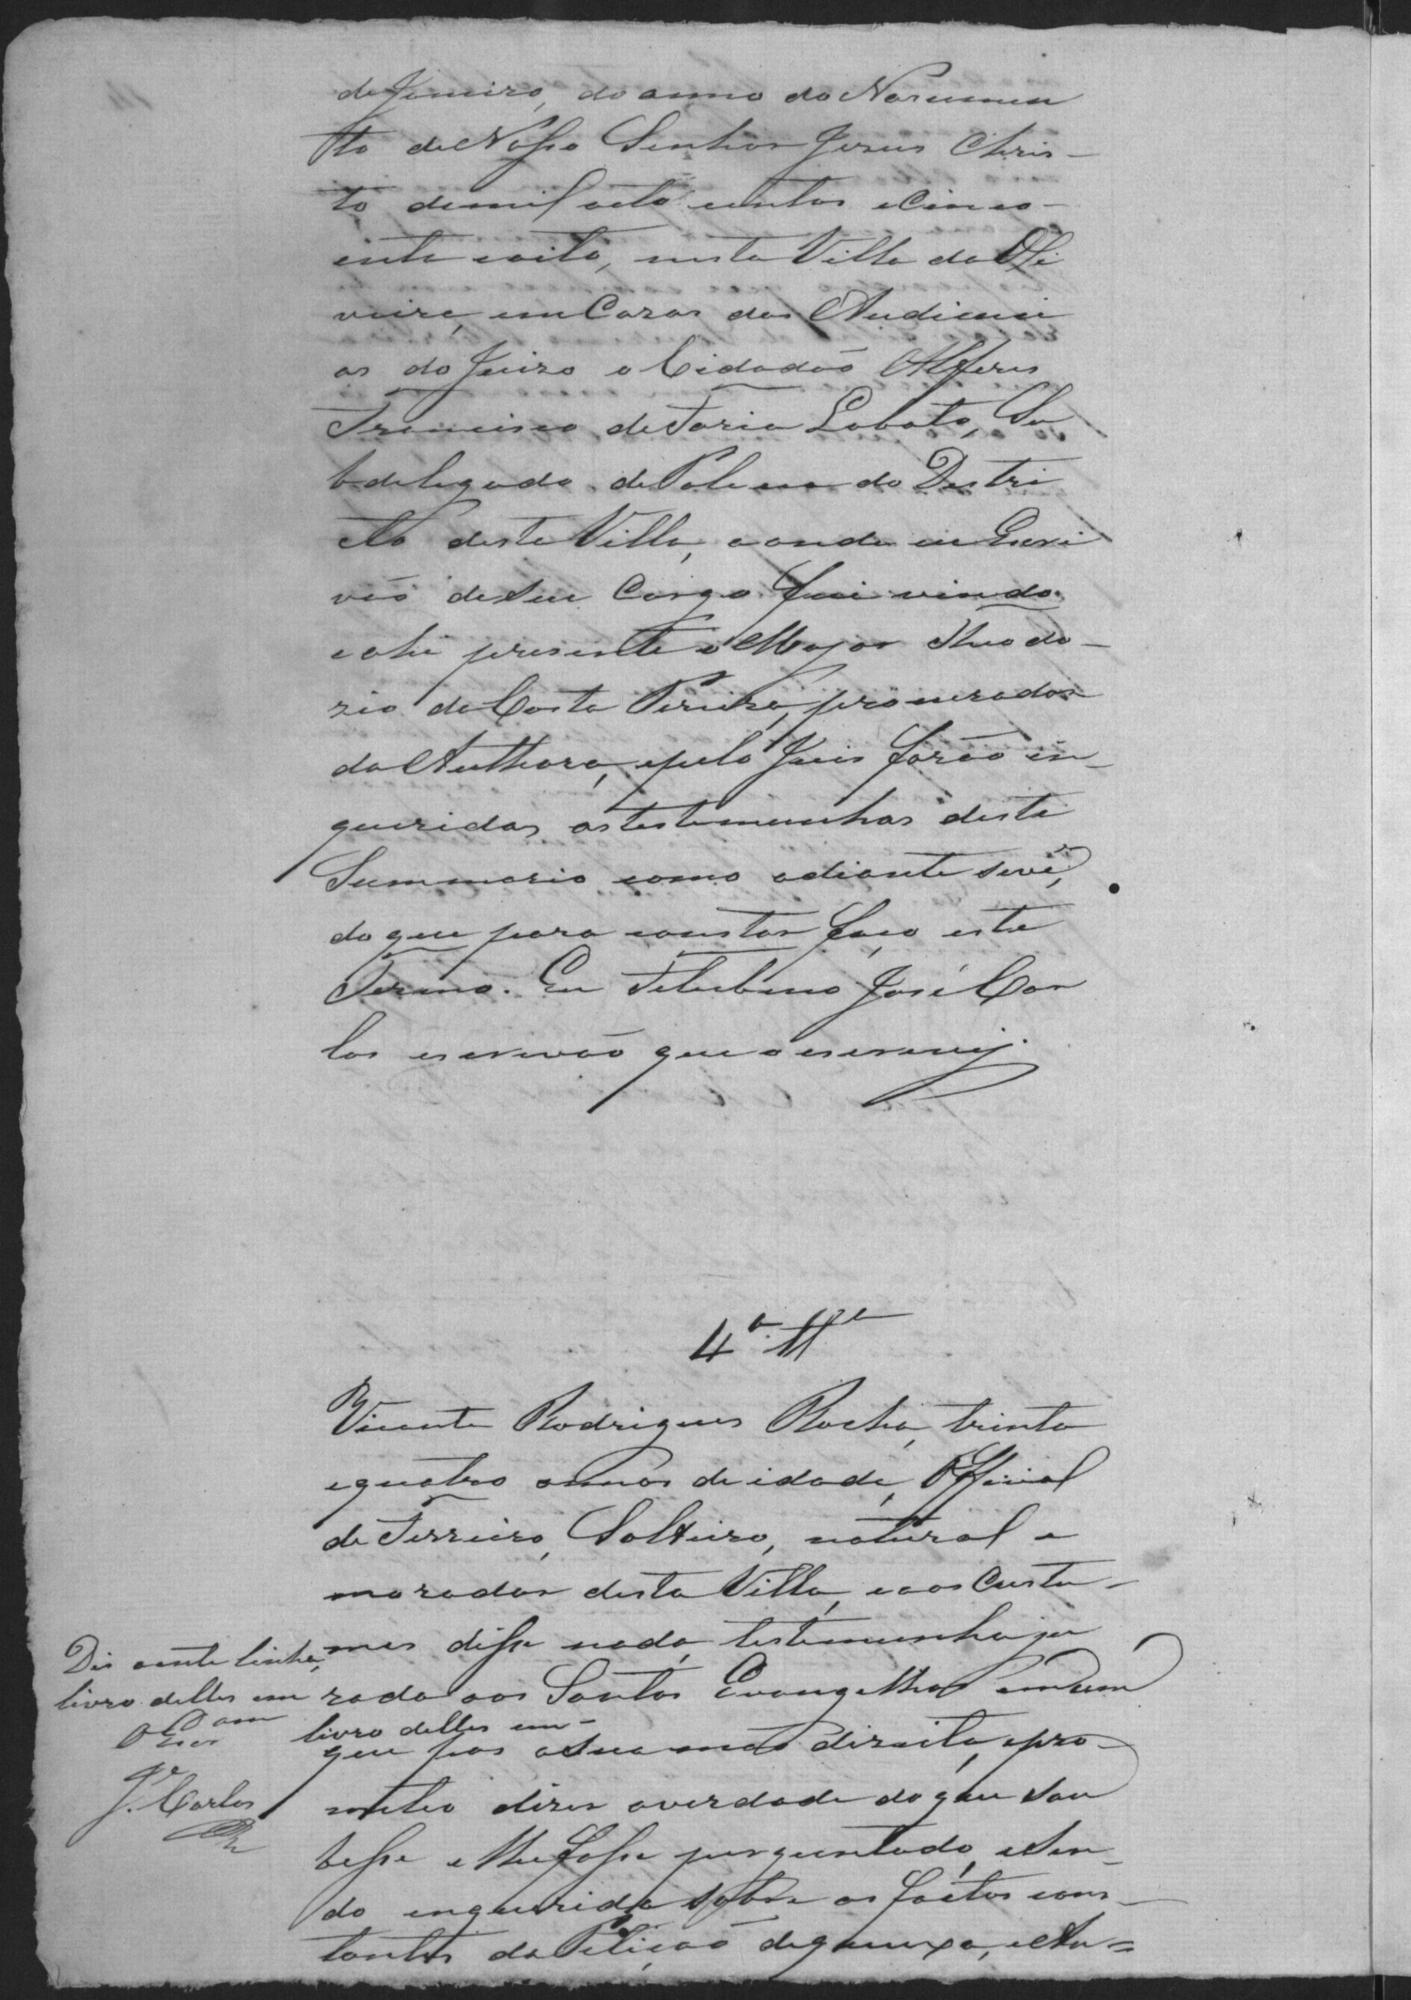 de Janeiro, do anno do Nascimen
to de Nosso Senhor Jesus Chris-
to de mil oito centos e Cinco-
enta e oito, nesta Villa da Oli
veira, em Casas das Audienci
as do Juiso o Cidadão Alferes
Francisco de Faria Lobato, Su
bdelegado de Policia do Destri
cto desta Villa, aonde eu Escri
vão de seu Cargo fui vindo
e ahi presente o Major Theodo-
zio da Costa Pereira, procurador
da Authora, e pelo Juis forão in-
queridas as testemunhas deste
Summario como adiante se vê,
do que para constar faço este
Termo. Eu Felisbino José Car
los escrivão que o escrevij.
4ª Ttª
Vicente Rodrigues Rocha, trinta
e quatro annos de idade, Official
de Ferreiro, Solteiro, natural e
morador desta Villa, e aos Custu-
mes disse nada, testemunha ju
rada aos Santos Evangelhos em um
livro delles em-
que pos a sua mão direita, e pro-
meteo dizer a verdade do que sou
besse e lhe fosse perguntado, e sen-
do enquerida sobre os factos cons-
tantes da Petição de queixa, e Au=
Dis a entre linha,
livro delles em
J. Carlos